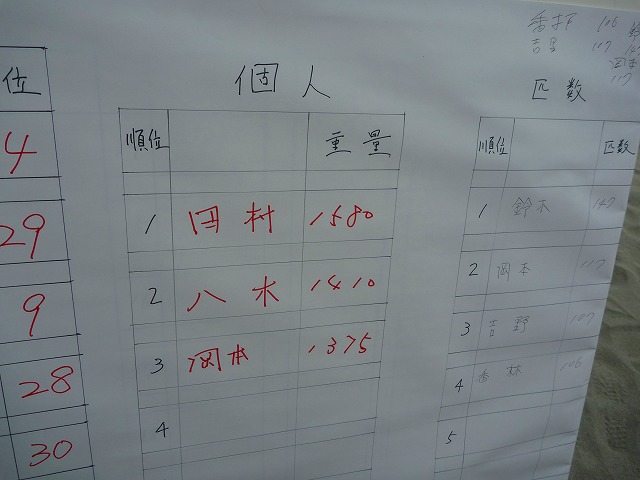 位
4
29
9
28
30
個人
順位 重量
1 田村 1580
2 八木 1410
3 岡本 1375
4
匹数
順位 匹数
1 鈴木 147
2 岡本 117
3 吉野 107
4 香林 106
5
106
吉野 107
岡本
117